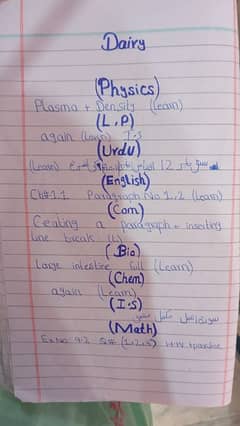 Dairy
(Physics)
Plasma + Density (Learn)
(L.P)
again (Learn) I.S
(Urdu)
(Learn) 12
(English)
Ch#1.1 Paragraph No 1,2 (Learn)
(Com)
Ceating a paragraph + inserting
line break (L)
(Bio)
Large intestine full (Learn)
(Chem)
again (Learn)
(I.S)
(Math)
Ex No 9.2 Q# (1,2,3) H.W + practice